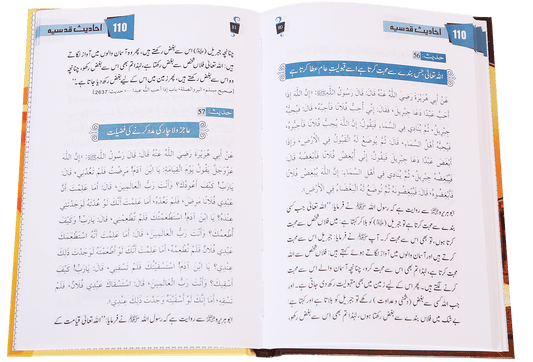 110 احادیث قدسیہ
حدیث: 56
اللہ تعالیٰ جس بندے سے محبت کرتا ہے اسے قبولیتِ عام عطا کرتا ہے
عَنْ أَبِي هُرَيْرَةَ رضي الله عنه قَالَ: قَالَ رَسُولُ اللَّهِ ﷺ: «إِنَّ اللَّهَ إِذَا
أَحَبَّ عَبْدًا دَعَا جِبْرِيلَ: فَقَالَ: إِنِّي أُحِبُّ فُلَانًا فَأَحِبَّهُ، قَالَ: فَيُحِبُّهُ
جِبْرِيلُ، ثُمَّ يُنَادِي فِي السَّمَاءِ فَيَقُولُ: إِنَّ اللَّهَ يُحِبُّ فُلَانًا فَأَحِبُّوهُ،
فَيُحِبُّهُ أَهْلُ السَّمَاءِ. قَالَ: ثُمَّ يُوضَعُ لَهُ الْقَبُولُ فِي الْأَرْضِ، وَإِذَا
أَبْغَضَ عَبْدًا دَعَا جِبْرِيلَ فَيَقُولُ: إِنِّي أُبْغِضُ فُلَانًا فَأَبْغِضْهُ، قَالَ:
فَيُبْغِضُهُ جِبْرِيلُ، ثُمَّ يُنَادِي فِي أَهْلِ السَّمَاءِ: إِنَّ اللَّهَ يُبْغِضُ فُلَانًا
فَأَبْغِضُوهُ، قَالَ: فَيُبْغِضُونَهُ ثُمَّ تُوضَعُ لَهُ الْبَغْضَاءُ فِي الْأَرْضِ».
ابوہریرہ سے روایت ہے کہ رسول اللہ ﷺ نے فرمایا: ”اللہ تعالیٰ جب کسی
بندے سے محبت کرتا ہے، تو جبریل کو بلا کر کہتا ہے: میں فلاں شخص سے محبت
کرتا ہوں، تو بھی اس سے محبت کر۔ آپ ﷺ نے فرمایا: جبریل اس سے محبت
کرتے ہیں اور آسمان والوں میں آواز لگاتے ہیں: اللہ تعالیٰ فلاں شخص سے
محبت کرتا ہے، لہٰذا تم بھی اس سے محبت کرو، چنانچہ آسمان والے اس سے محبت
کرنے لگتے ہیں، پھر اس کے لیے زمین میں بھی مقبولیت رکھ دی جاتی ہے۔ اور
جب اللہ کسی سے بغض (دشمنی و عداوت) رکھے تو جبریل کو بلاتا ہے اور کہتا ہے
بے شک میں فلاں بندے سے بغض رکھتا ہوں، لہٰذا تم بھی اس سے بغض رکھو،
احادیث قدسیہ 110
چنانچہ جبریل اس سے بغض رکھتے ہیں، پھر وہ آسمان والوں میں آواز لگاتے
ہیں: اللہ تعالیٰ فلاں شخص سے بغض رکھتا ہے، لہٰذا تم بھی اس سے بغض رکھو، چنانچہ
وہ اس سے بغض رکھتے ہیں، پھر زمین میں اس کے لیے بغض رکھ دیا جاتا ہے۔“
[صحیح مسلم، البر والصلة، باب إذا أحب اللہ عبدا...، حدیث: 2637]
حدیث: 57
عاجز و لاچار کی مدد کرنے کی فضیلت
عَنْ أَبِي هُرَيْرَةَ رضي الله عنه قَالَ: قَالَ رَسُولُ اللَّهِ ﷺ: «إِنَّ اللَّهَ
عَزَّوَجَلَّ يَقُولُ يَوْمَ الْقِيَامَةِ: يَا ابْنَ آدَمَ! مَرِضْتُ فَلَمْ تَعُدْنِي، قَالَ:
يَارَبِّ! كَيْفَ أَعُودُكَ؟ وَأَنْتَ رَبُّ الْعَالَمِينَ، قَالَ: أَمَا عَلِمْتَ أَنَّ
عَبْدِي فُلَانًا مَرِضَ، فَلَمْ تَعُدْهُ، أَمَا عَلِمْتَ أَنَّكَ لَوْ عُدْتَهُ لَوَجَدْتَنِي
عِنْدَهُ؟ يَا ابْنَ آدَمَ! اسْتَطْعَمْتُكَ فَلَمْ تُطْعِمْنِي، قَالَ: يَارَبِّ! وَكَيْفَ
أُطْعِمُكَ؟ وَأَنْتَ رَبُّ الْعَالَمِينَ، قَالَ: أَمَا عَلِمْتَ أَنَّهُ اسْتَطْعَمَكَ
عَبْدِي فُلَانٌ فَلَمْ تُطْعِمْهُ، أَمَا عَلِمْتَ أَنَّكَ لَوْ أَطْعَمْتَهُ لَوَجَدْتَ ذَلِكَ
عِنْدِي، يَا ابْنَ آدَمَ! اسْتَسْقَيْتُكَ فَلَمْ تَسْقِنِي، قَالَ: يَارَبِّ! كَيْفَ
أَسْقِيكَ؟ وَأَنْتَ رَبُّ الْعَالَمِينَ، قَالَ: اسْتَسْقَاكَ عَبْدِي فُلَانٌ فَلَمْ
تَسْقِهِ، أَمَا إِنَّكَ لَوْ سَقَيْتَهُ وَجَدْتَ ذَلِكَ عِنْدِي».
ابوہریرہ سے روایت ہے کہ رسول اللہ ﷺ نے فرمایا: ”اللہ تعالیٰ قیامت کے